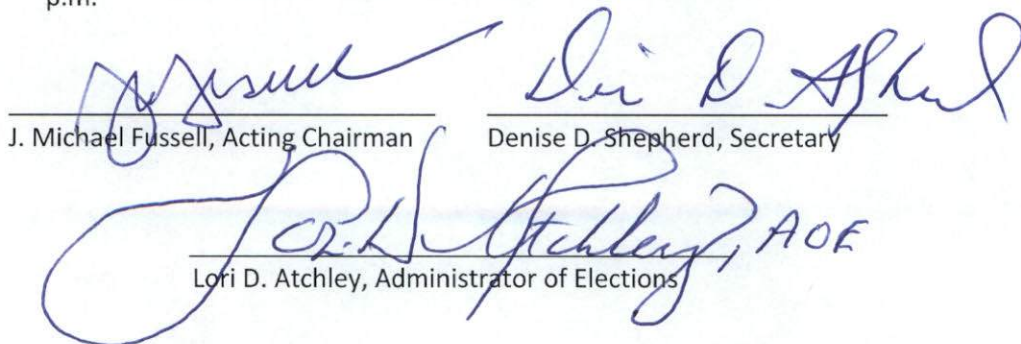 p.m.
J. Michael Fussell, Acting Chairman
Denise D. Shepherd, Secretary
Lori D. Atchley, AOE
Lori D. Atchley, Administrator of Elections